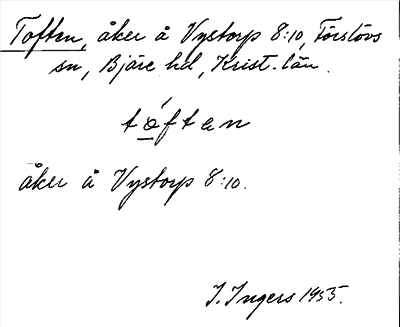 Toften, åker å Vystorp 8:10, Förslövs
sn, Bjäre hd, Krist. län.
tǿften
åker å Vystorp 8:10.
I. Ingers 1955.